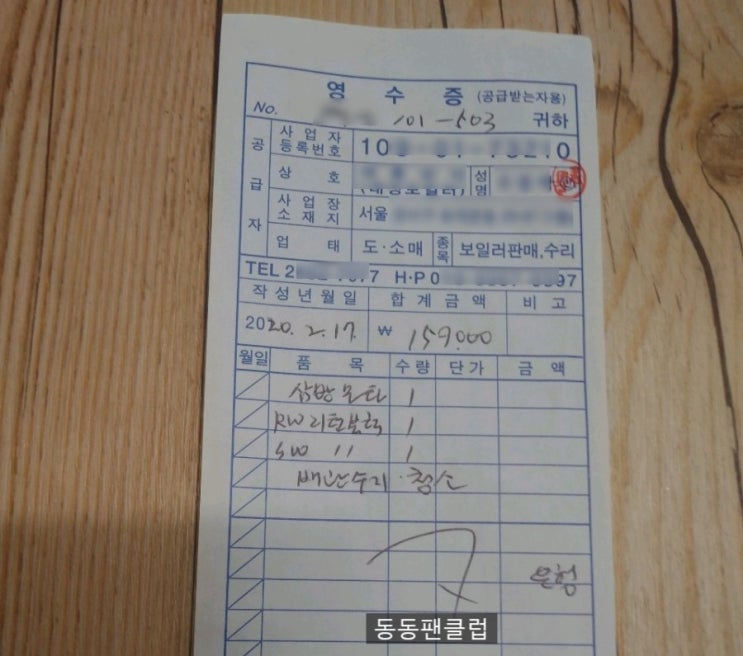 영 수 증 (공급받는자용)
No. 101-503 귀하
공급자
사업자등록번호 10
상 호 성명
사업장소재지 서울
업 태 도·소매 종목 보일러판매,수리
TEL 2 H·P 0
작성년월일 합계금액 비 고
2020. 2. 17. ₩ 159000
월일 품 목 수량 단가 금 액
삼방모타 1
RW리턴보턱 1
SW 〃 1
배관수리·청소
동동팬클럽